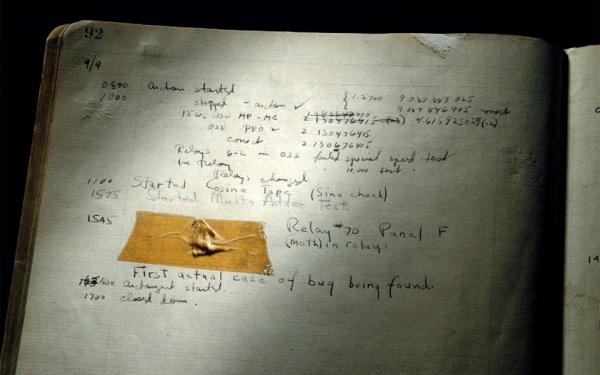 92
9/9
0800 antan started
1000 stopped - antan ✓ { 1.2700 9.037 847 025
9.037 846 995 correct
13"uc (032) MP-MC 2.130476415 (-3) 4.615925059(-2)
(033) PRO 2 2.130476415
correct 2.130676415
Relays 6-2 in 033 failed special speed test
in relay " 10,000 test.
Relays changed
1100 Started Cosine Tape (Sine check)
1525 Started Multy Adder Test.
1545 Relay #70 Panel F
(Moth) in relay.
First actual case of bug being found.
1630 antangent started.
1700 closed down.
14